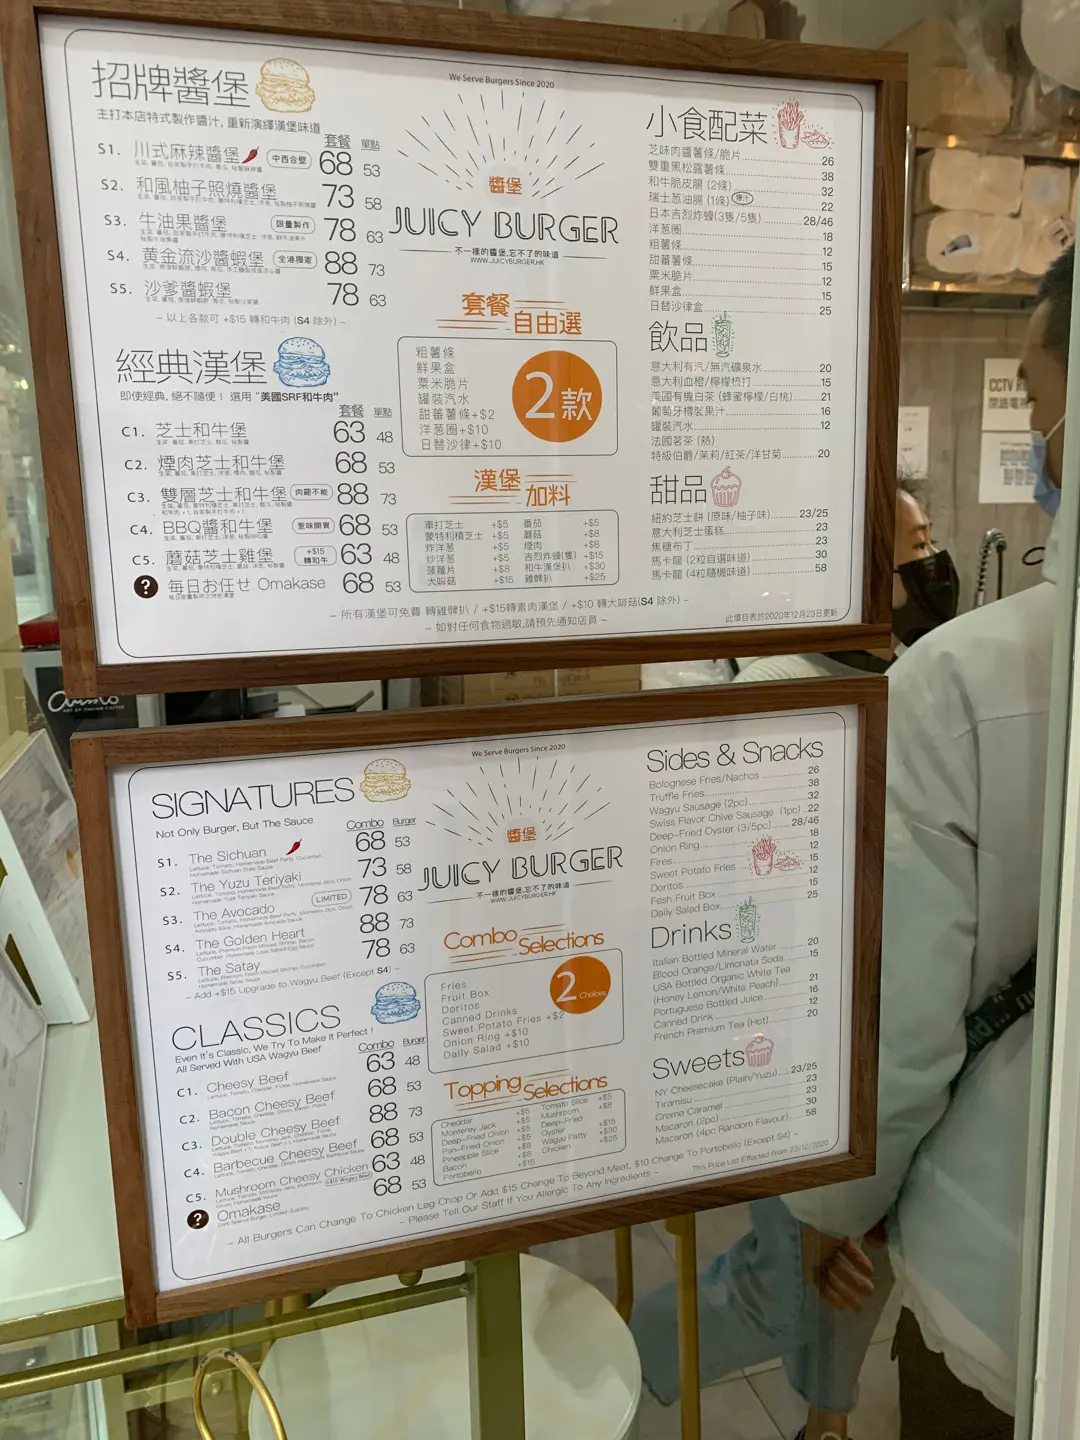 招牌醬堡
主打本店特式製作醬汁, 重新演繹漢堡味道
套餐 單點
S1. 川式麻辣醬堡 中西合壁 68 53
S2. 和風柚子照燒醬堡 73 58
S3. 牛油果醬堡 限量製作 78 63
S4. 黄金流沙醬蝦堡 全港獨家 88 73
S5. 沙爹醬蝦堡 78 63
– 以上各款可 +$15 轉和牛肉 (S4 除外) –
經典漢堡
即使經典, 絕不隨便！ 選用 "美國SRF和牛肉"
套餐 單點
C1. 芝士和牛堡 63 48
C2. 煙肉芝士和牛堡 68 53
C3. 雙層芝士和牛堡 肉罷不能 88 73
C4. BBQ醬和牛堡 惹味開胃 68 53
C5. 蘑菇芝士雞堡 +$15 轉和牛 63 48
? 毎日お任せ Omakase 68 53
We Serve Burgers Since 2020
醬堡
JUICY BURGER
不一樣的醬堡,忘不了的味道
WWW.JUICYBURGER.HK
套餐
自由選
粗薯條
鮮果盒
粟米脆片
罐裝汽水
甜蕃薯條+$2
洋葱圈+$10
日替沙律+$10
2款
漢堡
加料
車打芝士 +$5
蒙特利積芝士 +$5
炸洋葱 +$5
炒洋葱 +$5
菠蘿片 +$8
大啡菇 +$15
番茄 +$5
蘑菇 +$8
煙肉 +$8
吉烈炸蠔(隻) +$15
和牛漢堡扒 +$30
雞髀扒 +$25
小食配菜
芝味肉醬薯條/脆片 26
雙重黑松露薯條 38
和牛脆皮腸 (2條) 32
瑞士葱油腸 (1條) 爆汁 22
日本吉烈炸蠔(3隻/5隻) 28/46
洋葱圈 18
粗薯條 12
甜蕃薯條 15
粟米脆片 12
鮮果盒 15
日替沙律盒 25
飲品
意大利有汽/無汽礦泉水 20
意大利血橙/檸檬梳打 15
美國有機白茶 (蜂蜜檸檬/白桃) 21
葡萄牙樽裝果汁 16
罐裝汽水 12
法國茗茶 (熱)
特級伯爵/茉莉/紅茶/洋甘菊 20
甜品
紐約芝士餅 (原味/柚子味) 23/25
意大利芝士蛋糕 23
焦糖布丁 23
馬卡龍 (2粒自選味道) 30
馬卡龍 (4粒隨機味道) 58
– 所有漢堡可免費 轉雞髀扒 / +$15轉素肉漢堡 / +$10 轉大啡菇(S4 除外) –
– 如對任何食物過敏,請預先通知店員 –
此價目表於2020年12月23日更新
CCTV
SIGNATURES
Not Only Burger, But The Sauce
Combo Burger
S1. The Sichuan 68 53
Lettuce, Tomato, Homemade Beef Party, Cucumber,
Homemade Sichuan Style Sauce
S2. The Yuzu Teriyaki 73 58
S3. The Avocado LIMITED 78 63
S4. The Golden Heart 88 73
S5. The Satay 78 63
– Add +$15 Upgrade to Wagyu Beef (Except S4) –
CLASSICS
Even It's Classic, We Try To Make It Perfect !
All Served With USA Wagyu Beef
Combo Burger
C1. Cheesy Beef 63 48
C2. Bacon Cheesy Beef 68 53
C3. Double Cheesy Beef 88 73
C4. Barbecue Cheesy Beef 68 53
C5. Mushroom Cheesy Chicken +$15 Wagyu Beef 63 48
? Omakase 68 53
We Serve Burgers Since 2020
醬堡
JUICY BURGER
不一樣的醬堡,忘不了的味道
WWW.JUICYBURGER.HK
Combo
Selections
Fries
Fruit Box
Doritos
Canned Drinks
Sweet Potato Fries +$2
Onion Ring +$10
Daily Salad +$10
2 Choices
Topping
Selections
Cheddar +$5
Monterey Jack +$5
Deep-Fried Onion +$5
Pan-Fried Onion +$5
Pineapple Slice +$8
Bacon +$8
Portobello +$15
Tomato Slice +$5
Mushroom +$8
Deep-Fried
Oyster +$15
Wagyu Patty +$30
Chicken +$25
Sides & Snacks
Bolognese Fries/Nachos 26
Truffle Fries 38
Wagyu Sausage (2pc) 32
Swiss Flavor Chive Sausage (1pc) 22
Deep-Fried Oyster (3/5pc) 28/46
Onion Ring 18
Fires 12
Sweet Potato Fries 15
Doritos 12
Fesh Fruit Box 15
Daily Salad Box 25
Drinks
Italian Bottled Mineral Water 20
Blood Orange/Limonata Soda 15
USA Bottled Organic White Tea
(Honey Lemon/White Peach) 21
Portuguese Bottled Juice 16
Canned Drink 12
French Premium Tea (Hot) 20
Sweets
NY Cheesecake (Plain/Yuzu) 23/25
Tiramisu 23
Creme Caramel 23
Macaron (2pc) 30
Macaron (4pc Random Flavour) 58
– All Burgers Can Change To Chicken Leg Chop Or Add $15 Change To Beyond Meat, $10 Change To Portobello (Except S4) –
– Please Tell Our Staff If You Allergic To Any Ingredients –
This Price List Effected From 23/12/2020